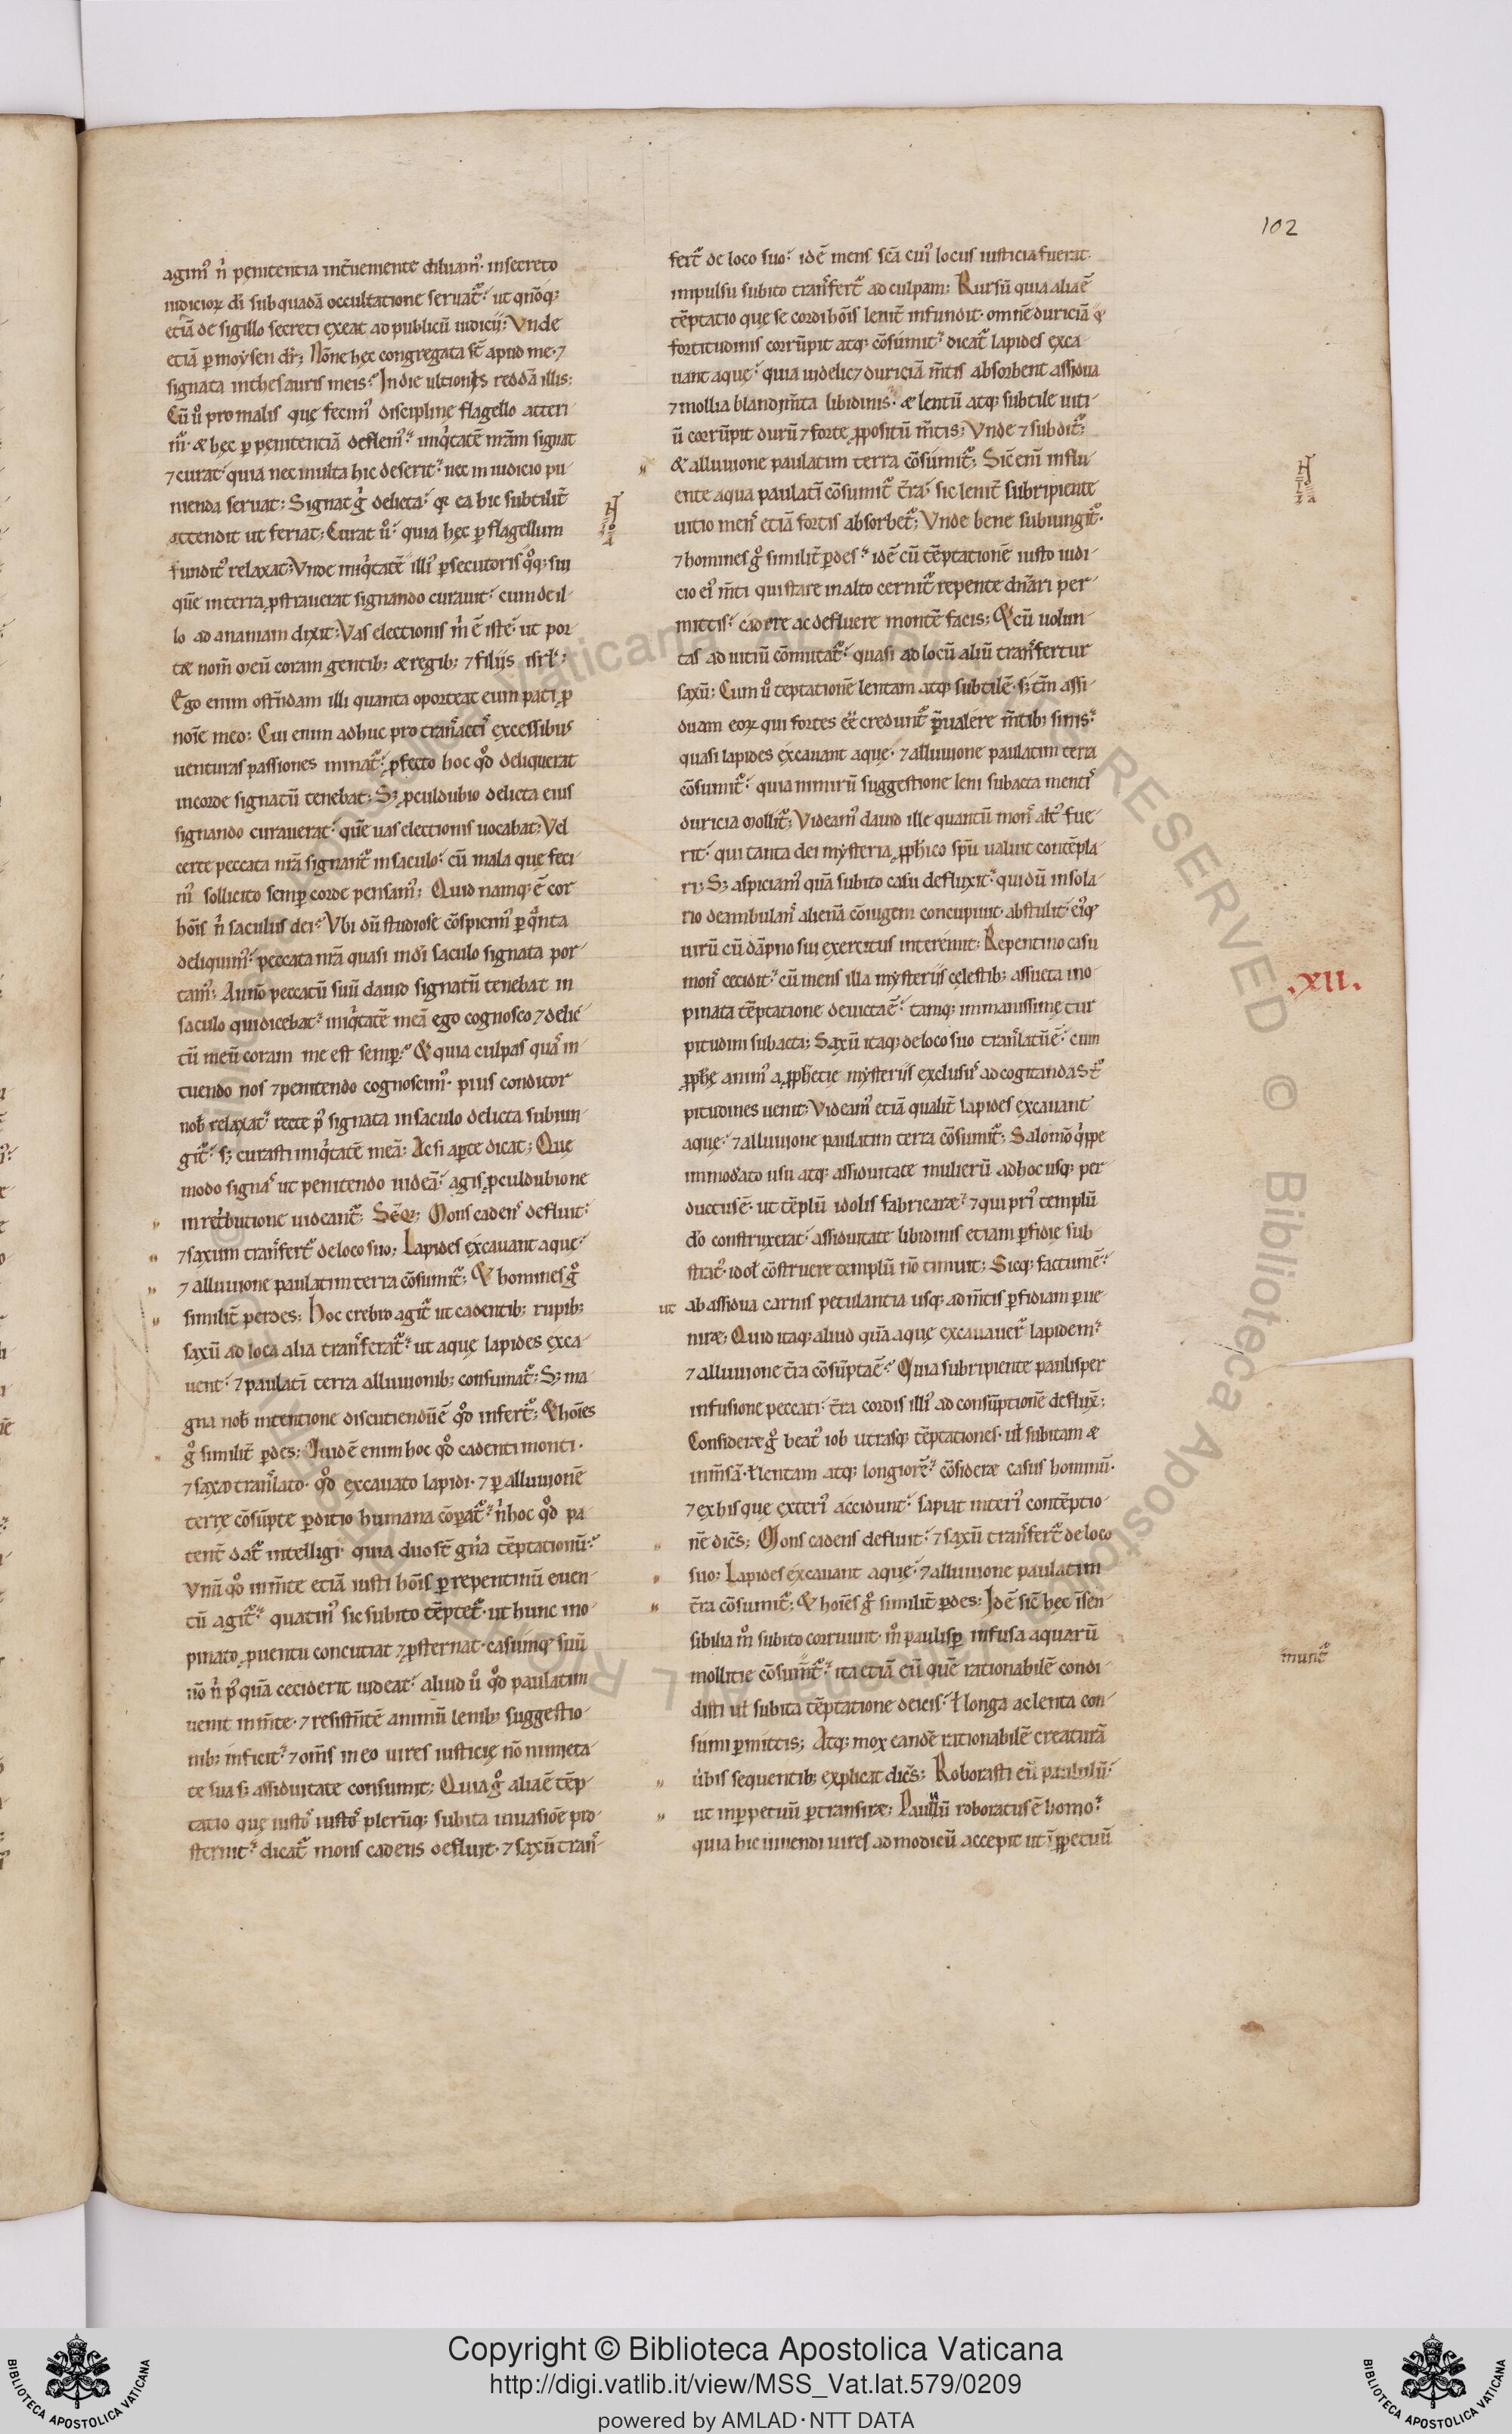 102
agim᷒ ń pęnitentia int̃ueniente diluam᷒· in secreto
iudicioꝝ di̅ sub quadā occultatione seruat᷑·́ ut qn̄oq;
etiā de sigillo secreti exeat ad publicū iudicii; Vnde
etiā ꝑ moysen dr̄; Nōne hęc congregata st̄ apud me· ⁊
signata in thesauris meis·́ In die ultionis reddā illis;
Cū ů pro malis quę fecim᷒ disciplinę flagello atteri
m᷑· æ hęc ꝑ penitentiā deflem᷒·́ iniq̇tatē nr̄am signat
⁊ curat· quia nec inulta hic deserit·́ nec in iudicio pu-
nienda seruat; Signat ǵ delicta·́ qꝛ ea hic subtilit̄
attendit ut feriat; Curat ů·́ quia hęc ꝑ flagellum
fundit᷒ relaxat; Vnde iniq̇tatē illi᷒ ꝑsecutoris q̊q; sui
quē in terra ꝓstrauerat signando curauit·́ cum de il-
lo ad ananiam dixit; Vas electionis m̊ ē iste·́ ut por-
tæ nom̄ meū coram gentib; æ regib; ⁊ filijs isrl̄;
Ego enim ostn̄dam illi quanta oporteat eum pati ꝓ
noīe meo; Cui enim adhuc pro tran᷒acti᷒ excessibus
uenturas passiones minat᷑·́ ꝓfecto hoc qd̊ deliquerat
in corde signatū tenebat; Sꝫ ꝓculdubio delicta eius
signando curauerat· quē uas electionis uocabat; Vel
certe peccata nr̄a signant᷑ in saculo·́ cū mala que feci
m᷒ sollicito semꝑ corde pensam᷒; Quid namq; ē cor
hōis ń saculus dei·́ Vbi dū studiose cōspicim᷒ ꝑ q̊nta
deliquim᷒·́ peccata nr̄a quasi in dī saculo signata por-
tam᷒; Anno̅ peccatū suū dauid signatū tenebat in
saculo qui dicebat·́ iniq̇tatē meā ego cognosco ⁊ delic-
tū meū coram me est semꝑ·́ & quia culpas qua᷒ in-
tuendo nos ⁊ penitendo cognoscim᷒· pius conditor
nob̄ relaxat·́ recte p᷒ signata in saculo delicta subiun-
git᷑·́ sꝫ curasti iniq̇tatē meā; Ac si aꝑte dicat; Quę
modo signa᷒ ut penitendo uideā·́ agis ꝓculdubio ne
in ret̊butione uideant᷑; Seq̄; Mons caden᷒ defluit·́
⁊ saxum tran᷒fert᷑ de loco suo; Lapides excauant aquę·́
⁊ alluuione paulatim terra cōsumit᷑; & homines g̊
similit̄ perdes; Hoc crebro agit᷑ ut cadentib; rupib;
saxū ad loca alia tran᷒ferat᷑·́ ut aquę lapides exca-
uent·́ ⁊ paulati̅ terra alluuionib; consumat᷑; Sꝫ ma-
gna nob̄ intentione discutiendū ē qd̊ infert᷑; & hoīes
g̊ similit̄ ꝑdes; Quid ē enim hoc qd̊ cadenti monti·
⁊ saxo tran᷒lato· qd̊ excauato lapidi· ⁊ ꝑ alluuionē
terrę cōsūpte ꝑditio humana cōꝑat᷑·́ ń hoc qd̊ pa-
tent̄ dat᷑ intelligi quia duo st̄ gn̄a tēptationū·́
Vnū qd̊ in m̄te etiā iusti hōis ꝑ repentinū euen-
tū agit᷑·́ quatin᷒ sic subito tēptet᷑· ut hunc ino-
pinato ꝓuentu concutiat ⁊ ꝓsternat· casūmq; suū
nō ń p᷒ quā ceciderit uideat·́ aliud ů qd̊ paulatim
uenit in m̄te· ⁊ resistn̄tē animū lenib; suggestio-
nib; inficit·́ ⁊ om̄s in eo uires iusticię nō nimieta-
te sua sꝫ assiduitate consumit; Quia g̊ alia ē tēp-
tatio quę iusto᷒ iusto᷒ plerūq; subita inuasiōe pro-
sternit·́ dicat᷑ mons cadens defluit· ⁊ saxū tran᷒-
fert᷑ de loco suo·́ id ē mens sc̄a cui᷒ locus iusticia fuerat·
impulsu subito tran᷒fert᷑ ad culpam; Rursū quia alia ē
tēptatio quę se cordi hōis lenit̄ infundit· omnē duriciā &
fortitudinis corrūpit atq; cōsūmit·́ dicat᷑ lapides exca-
uant aquę·́ quia uidelicꝫ duriciā m̄tis absorbent assidua
⁊ mollia blandim̄ta libidinis·́ æ lentū atq; subtile uiti-
ū corrūpit durū ⁊ forte ꝓpositū m̄tis; Vnde ⁊ subdit᷑;
& alluuione paulatim terra cōsūmit᷑; Sic̄ eni̅ influ-
ente aqua paulati̅ cōsumit᷑ t̄ra·́ sic lenit̄ subripiente
uitio men᷒ etiā fortis absorbet᷑; Vnde bene subiungit᷑·
⁊ homines g̊ similit̄ ꝑdes·́ id ē cū tēptationē iusto iudi-
cio ei᷒ m̄ti qui stare in alto cernit᷑ repente dn̄ari per-
mittis·́ cadere ac defluere montē facis; & cū uolun-
tas ad uitiū cōmutat᷑·́ quasi ad locū aliū tran᷒fertur
saxū; Cum ů teptationē lentam atq; subtilē· sꝫ tam̄ assi-
duam eoꝝ qui fortes eē credunt᷑ p̄ualere m̄tib; sinis·́
quasi lapides excauant aquę· ⁊ alluuione paulatim terra
cōsumit᷑·́ quia nimirū suggestione leni subacta menti᷒
duricia mollit᷑; Videam᷒ dauid ille quantū mon᷒ alt᷒ fue-
rit·́ qui tanta dei mysteria ꝓphico spū ualuit contēpla-
ri; Sꝫ aspiciam᷒ quā subito casu defluxit·́ qui dū in sola-
rio deambulan᷒ alienā cōiugem concupiuit· abstulit· ei᷒q;
uirū cū dāpno sui exercitus interemit; Repentino casu
mon᷒ cecidit·́ cū mens illa mysterijs cęlestib; assueta ino-
pinata tēptatione deuicta ē·́ tamq; immanissimę tur-
pitudini subacta; Saxū itaq; de loco suo tran᷒latū ē·́ cum
ꝓphę anim᷒ a ꝓphetię mysterijs exclusu᷒ ad cogitandas t᷑-
pitudines uenit; Videam᷒ etiā qualit̄ lapides excauant
aquę·́ ⁊ alluuione paulatim terra cōsumit᷑; Salomō q̇ppe
immod̄ato usu atq; assiduitate mulierū ad hoc usq; per-
ductus ē· ut tēplū idolis fabricaræ·́ ⁊ qui pri᷒ templū
dō construxerat·́ assiduitate libidinis etiam ꝑfidię sub-
strat᷒· idol̄ cōstruere templū nō timuit; Sicq; factum ē·́
ut ab assidua carnis petulantia usq; ad m̄tis ꝑfidiam ꝑue-
niræ; Quid itaq; aliud quā aquę excauauer̄ lapidem·́
⁊ alluuione t̄ra cōsūpta ē·́ Quia subripiente paulisper
infusione peccati· t̄ra cordis illi᷒ ad consūptionē deflux̄;
Consideræ g̊ beat᷒ iob utrasq; tēptationes· ul̄ subitam æ
inm̄sā· ł lentam atq; longiorē·́ cōsideræ casus hominū·
⁊ ex his que exteri᷒ accidunt·́ sapiat interi᷒ contēptio-
nē dic̄s; Mons cadens defluit·́ ⁊ saxū tran᷒fert᷑ de loco
suo; Lapides excauant aquę·́ ⁊ alluuione paulatim
t̄ra cōsumit᷑; & hoīes g̊ similit̄ ꝑdes; Id ē sic̄ hęc i̅sen-
sibilia m̊ subito corruunt· m̊ paulisꝑ infusa aquarū
mollitie cōsum̄t᷑·́ ita etiā eū quē rationabilē condi-
disti ul̄ subita tēptatione deicis·́ ł longa ac lenta con-
sumi ꝑmittis; Atq; mox eandē rationabilē creaturā
ůbis sequentib; explicat dic̄s; Roborasti eū paululū·́
ut in ꝑpetuū ꝑtransiræ; Paululū roboratus ē homo·́
quia hic uiuendi uires ad modicū accepit ut i̅ ꝑpetuū
.XII.
munt᷑
Copyright © Biblioteca Apostolica Vaticana
http://digi.vatlib.it/view/MSS_Vat.lat.579/0209
powered by AMLAD·NTT DATA
BIBLIOTECA APOSTOLICA VATICANA
BIBLIOTECA APOSTOLICA VATICANA